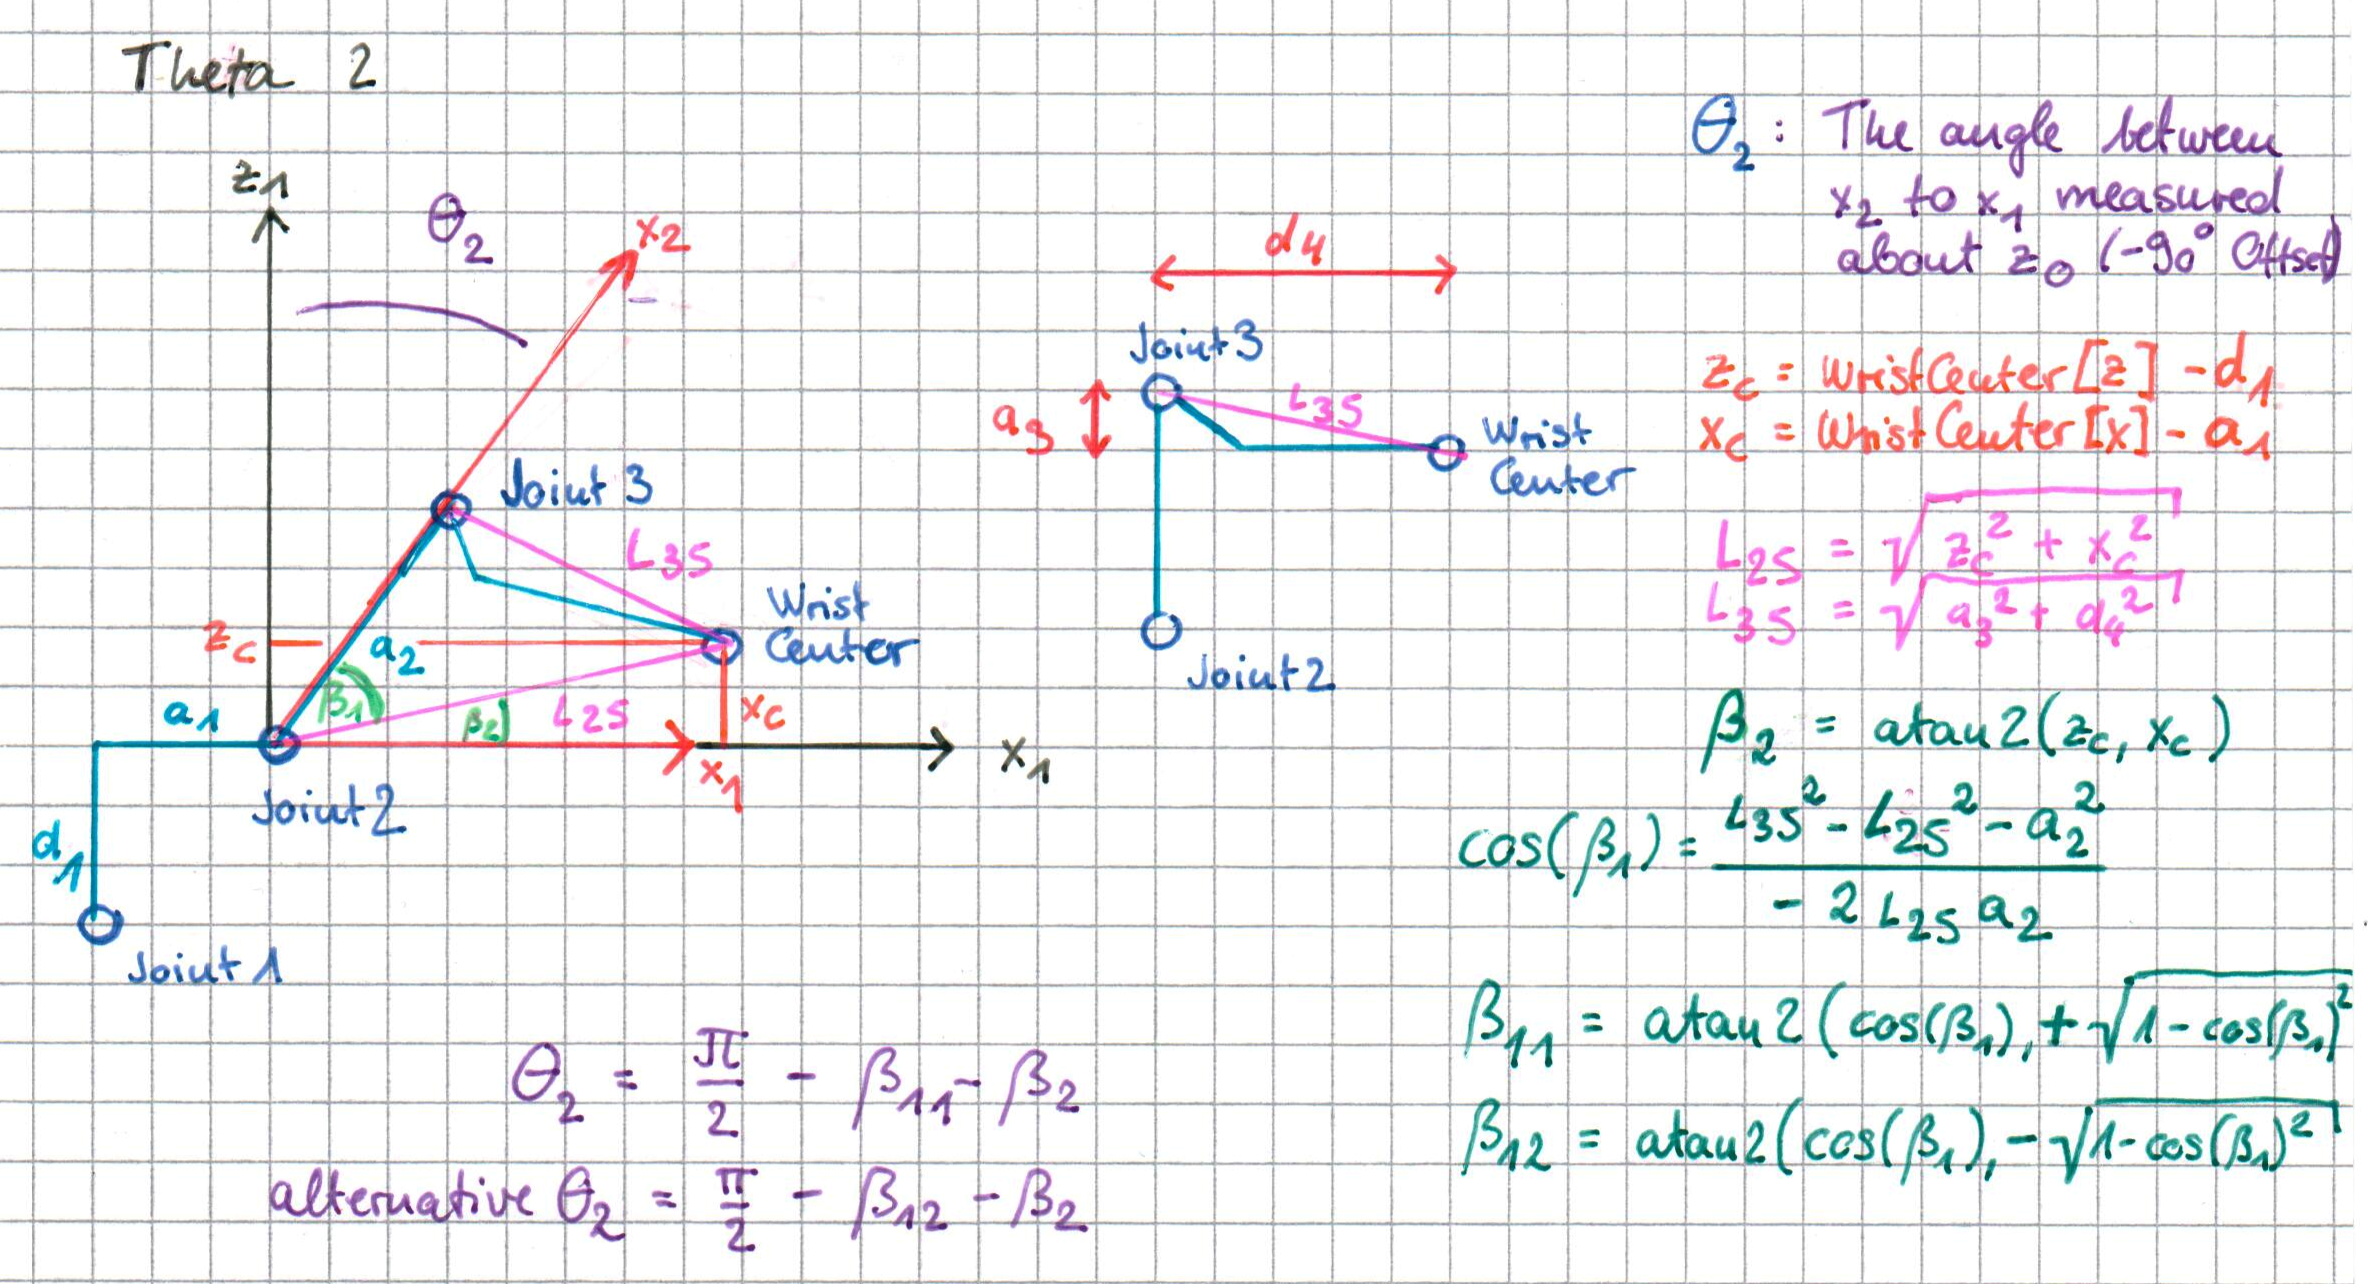 Theta 2
z1
θ2
x2
Joint 3
L35
Wrist
Center
zc
a2
β1
β2
L25
xc
a1
x1
x1
Joint 2
d1
Joint 1
d4
Joint 3
a3
L35
Wrist
Center
Joint 2
θ2 : The angle between
x2 to x1 measured
about z0 (-90° Offset)
zc = WristCenter[z] - d1
xc = WristCenter[x] - a1
L25 = √(zc² + xc²)
L35 = √(a3² + d4²)
β2 = atan2(zc, xc)
cos(β1) = (L35² - L25² - a2²) / (-2 L25 a2)
β11 = atan2(cos(β1), +√(1 - cos(β1)²
β12 = atan2(cos(β1), -√(1 - cos(β1)²
θ2 = π/2 - β11 - β2
alternative θ2 = π/2 - β12 - β2